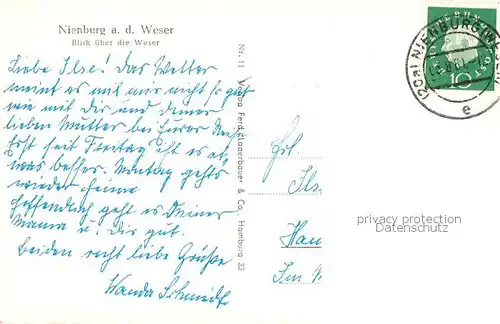 Nienburg a. d. Weser
Blick über die Weser
Liebe Ilse! Das Wetter
meint es mit mir nicht so gut
wie mit dir und deiner
lieben Mutter bei Eurer
Erst seit Freitag ist es et-
was besser. Montag gehts
wieder heim.
Hoffendlich geht es Deiner
Mama u. Dir gut.
Beiden recht liebe Grüße
Wanda Schmidt
Nr. 11 Verlag Ferd. Lagerbauer & Co., Hamburg 33
Frl.
Ils
Han
Im
(20a) NIENBURG (WES
e
10
privacy protection
DATENSCHUTZ